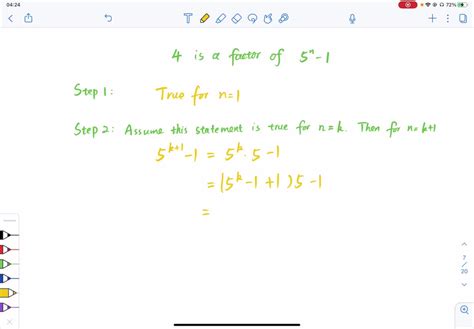 04:24
72%
4 is a factor of 5ⁿ-1
Step 1: True for n=1
Step 2: Assume this statement is true for n=k. Then for n=k+1
5ᵏ⁺¹-1 = 5ᵏ·5 -1
= (5ᵏ-1+1)5-1
=
7
/
20